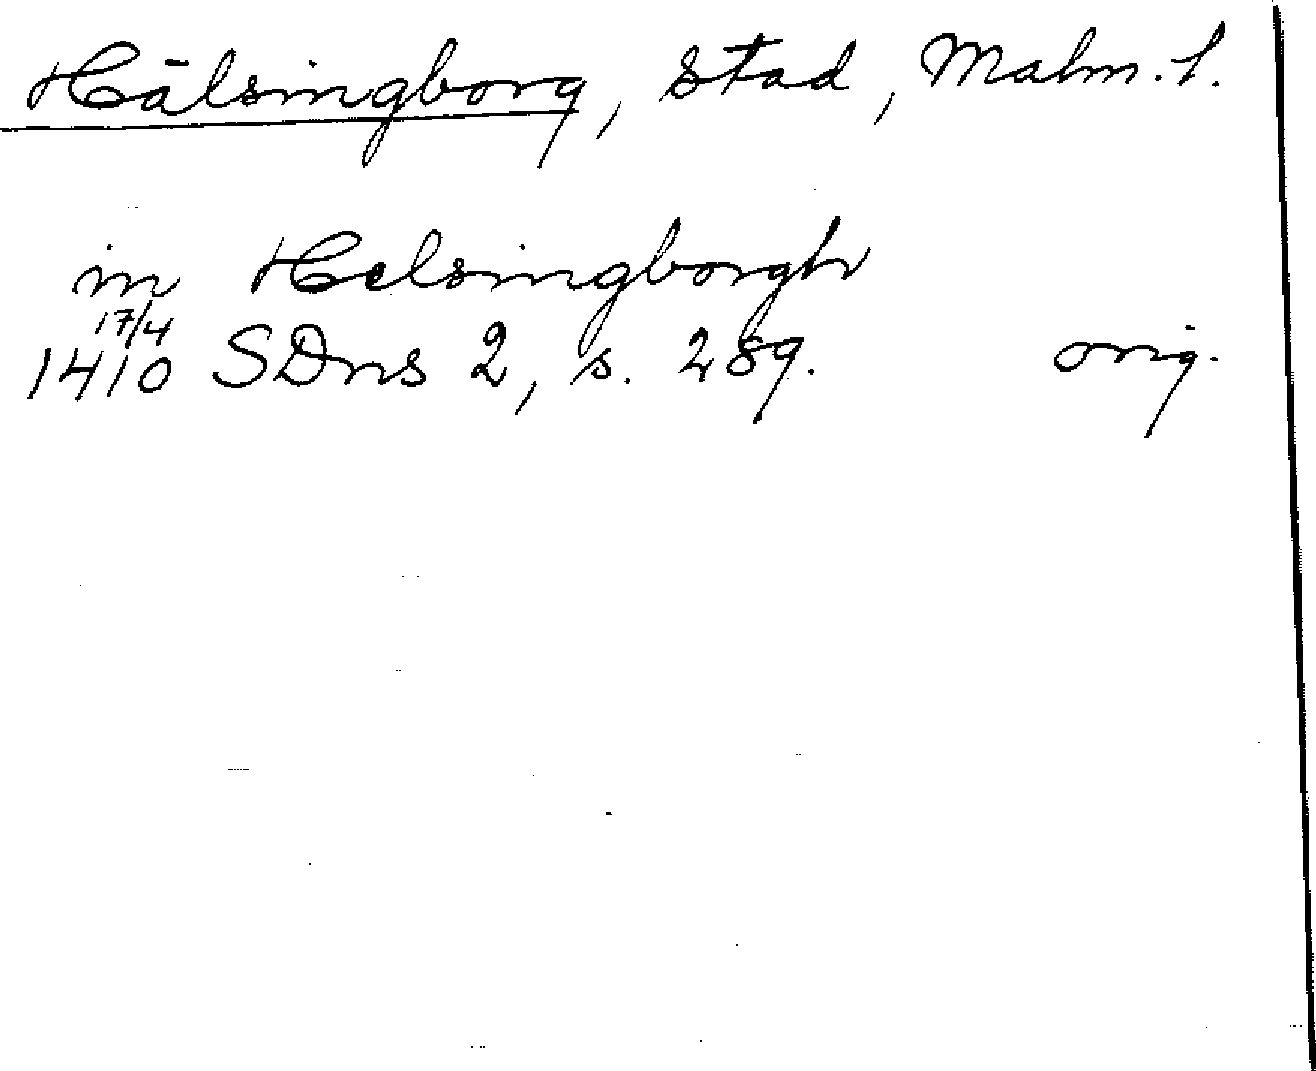 Hälsingborg, stad, Malm. l.
in Helsingborgh
17/4
1410 SDns 2, s. 289. orig.